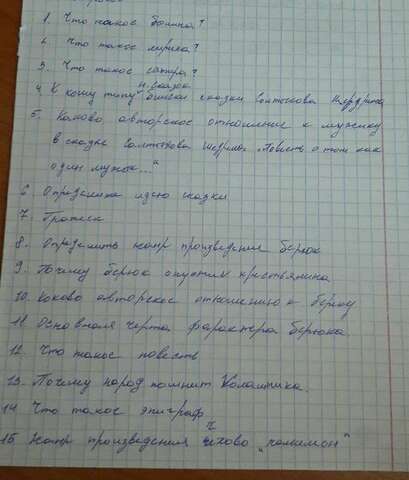 1. Что такое
2. Что такое лирика?
3. Что такое сатира?
н. сказок
4. К кому типу близки сказки Солтыкова Щедрина
5. Каково авторское отношение к мужику
в сказке Солтыкова Щедрина „Повесть о том как
один мужик..."
6. Определить идею сказки
7. Гротеск
8. Определить жанр произведение бирюк
9. Почему бирюк опустил крестьянина
10. Каково авторское отношению к бирюку
11. Основная черта характера бирюка.
12. Что такое повесть
13. Почему народ помнит Калашника.
14. Что такое эпиграф
15. Жанр произведения Чехово „хамелион"